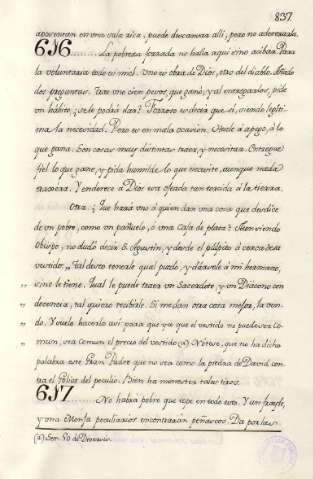 837.
aposentan en una vala rica, puede descansar allí, pero no adorarla.
616 ....... La pobreza forzada no halla aqui sino acibar. Para
la voluntaria todo es miel. Uno es obra de Dios, otro del diablo. Añado
dos preguntas: Tuvo una cien pesos, que ganó, y al entregarlos, pide
un hábito; se le podrá dar? Forzoso es decir que sí, siendo legíti-
ma la necesidad. Pero es en mala ocasión. Huele á apego, á lo
que gana. Son cosas muy distintas traer, y necesitar. Entregue
fiel lo que gane, y pida humilde lo que necesite, aunque nada
trajera. Y enderece á Dios esa ojeada tentada á la tierra.
Otra: ¿Que hará uno á quien dan una cosa que desdice
de un pobre, como un pañuelo, ó una Caja de plata? Aun siendo
Obispo, no dudó decir S. Agustín, y desde el púlpito á cerca de su
vestido: „ Tal debo tenerle qual pueda, y dársele á mi hermano,
„ sino le tiene. Qual le puede traer un Sacerdote, y un Diácono con
„ decencia, tal quiero recibirle. Si me dan otra cosa mejor, la ven-
„ do. Y suelo hacerlo así para que ya que el vestido no puede ser Co-
„ mun, sea comun el precio del vestido (a). Nótese, que no ha dicho
palabra este Gran Padre que no sea como la piedra de David con-
tra el Goliat del peculio. Bien ha menester tales tiros.
617 ....... No habrá pobre que tope en todo esto. Y un frayle,
y una Monja peculiarios encontrarán peñascos. Da por ley
(a) Serm. 50 de Diversis.